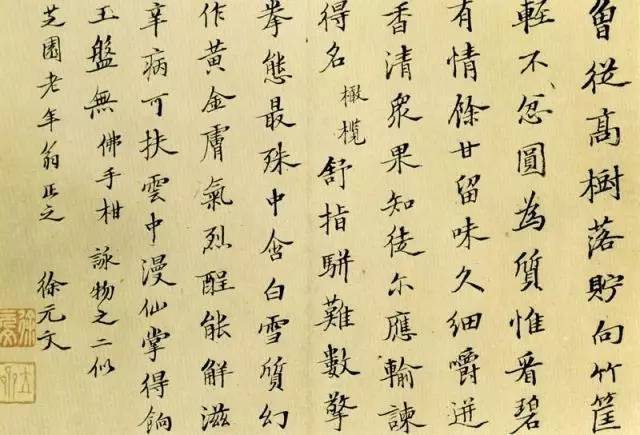 曾從高樹落貯向竹筐
輕不忿圓為質惟看碧
有情餘甘留味久細嚼迸
香清衆果知徒尔應輸諫
得名 橄欖 舒指駢難數擎
拳態最殊中含白雪質幻
作黃金膚氣烈酲能解滋
辛病可扶雲中漫仙掌得餉
玉盤無 佛手柑 詠物之二似
芝園老年翁正之 徐元文